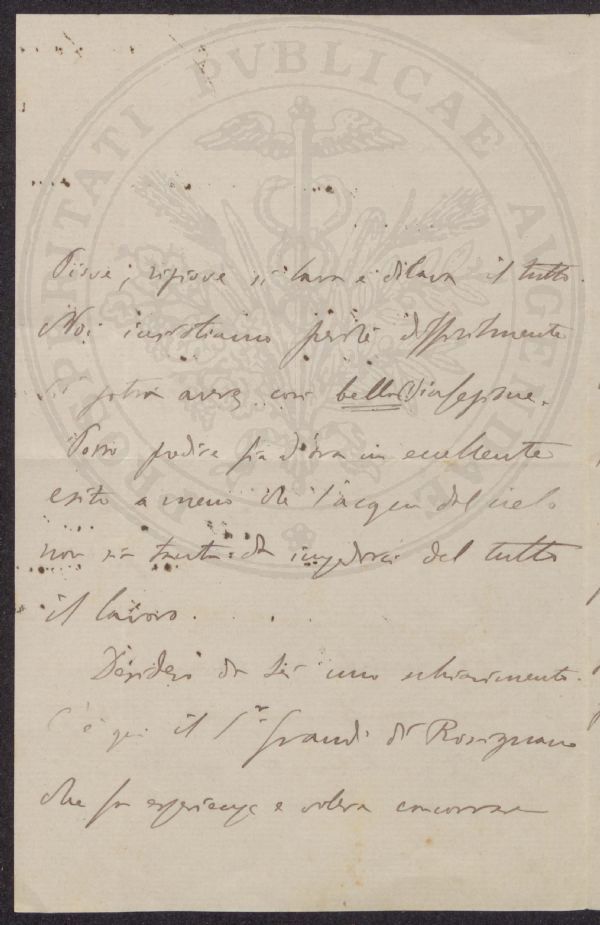 PROSPERITATI PUBLICAE AUGENDAE
Piove, ripiove si lava e dilava il tutto.
Noi insistiamo perchè difficilmente
si potrà avere così bella(!) stagione.
Posso predire fin d'ora un eccellente
esito a meno che l'acqua dal cielo
non sia tanta da impedirci del tutto
il lavoro.
Desidero da Lei uno schiarimento.
C'è qui il Sr. Grandi di Rosignano
che fa esperienze e voleva concorrere